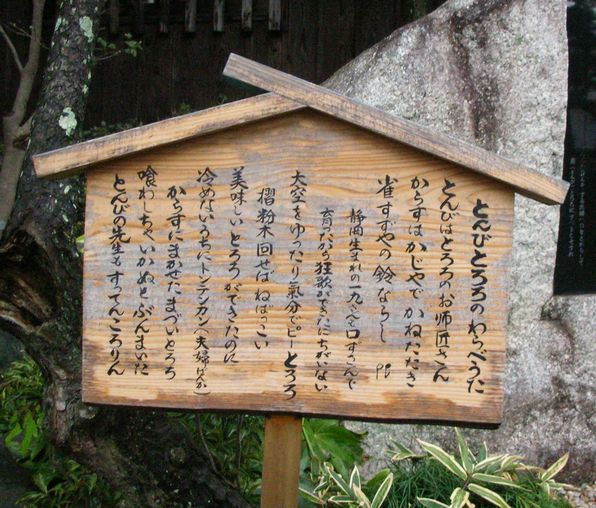 とんびとろろのわらべうた
とんびはとろろのお師匠さん
からすはかじやで かねたたき
雀すずやの鈴ならし
静岡生まれの一九さんを口ずさんで
育ったから狂歌ができたにちがいない
大空をゆったり氣分でピーとろろ
摺粉木回せばねばっこい
美味しいとろろができたのに
冷めないうちにトンテンカン(夫婦げんか)
からすにまかせたまづいとろろ
喰わしちゃいかぬとぶんまいた
とんびの先生もすってんころりん